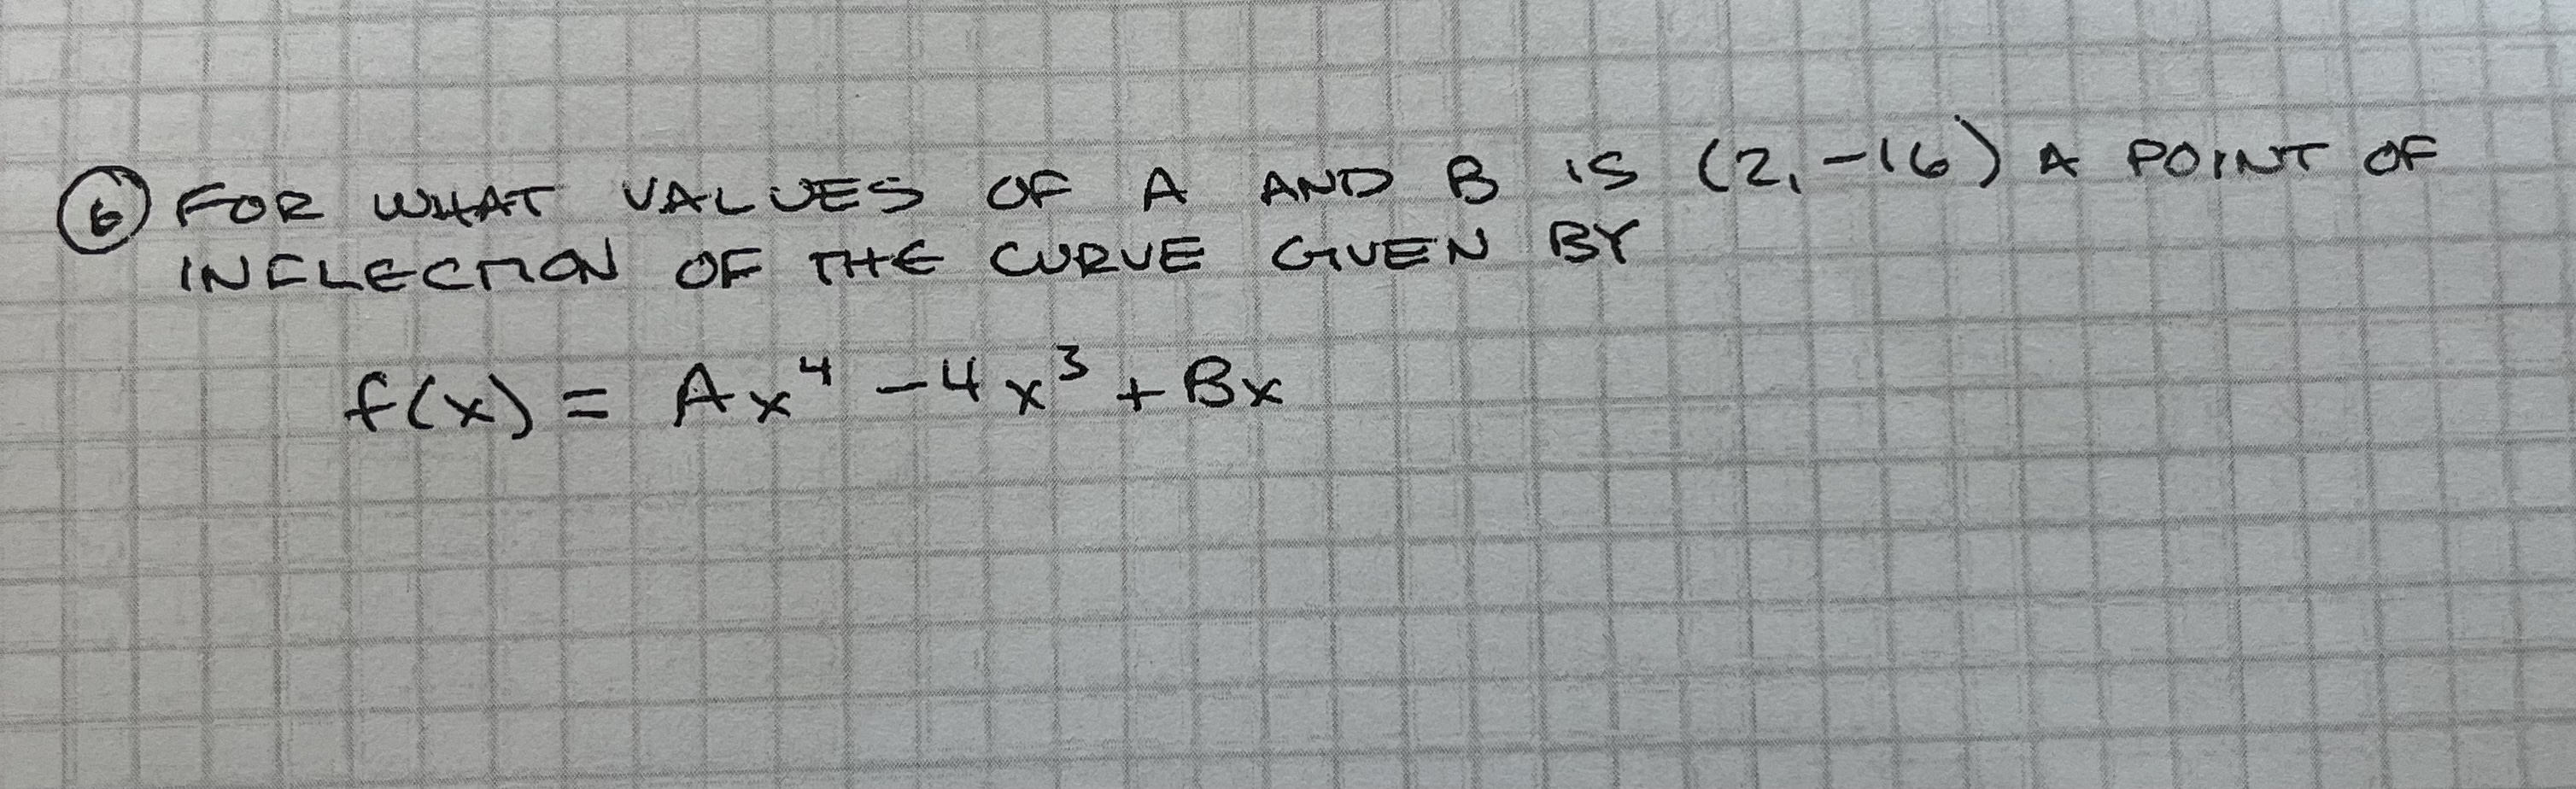 ⑥ FOR WHAT VALUES OF A AND B IS (2, -16) A POINT OF
INFLECTION OF THE CURVE GIVEN BY
f(x) = Ax⁴ - 4x³ + Bx